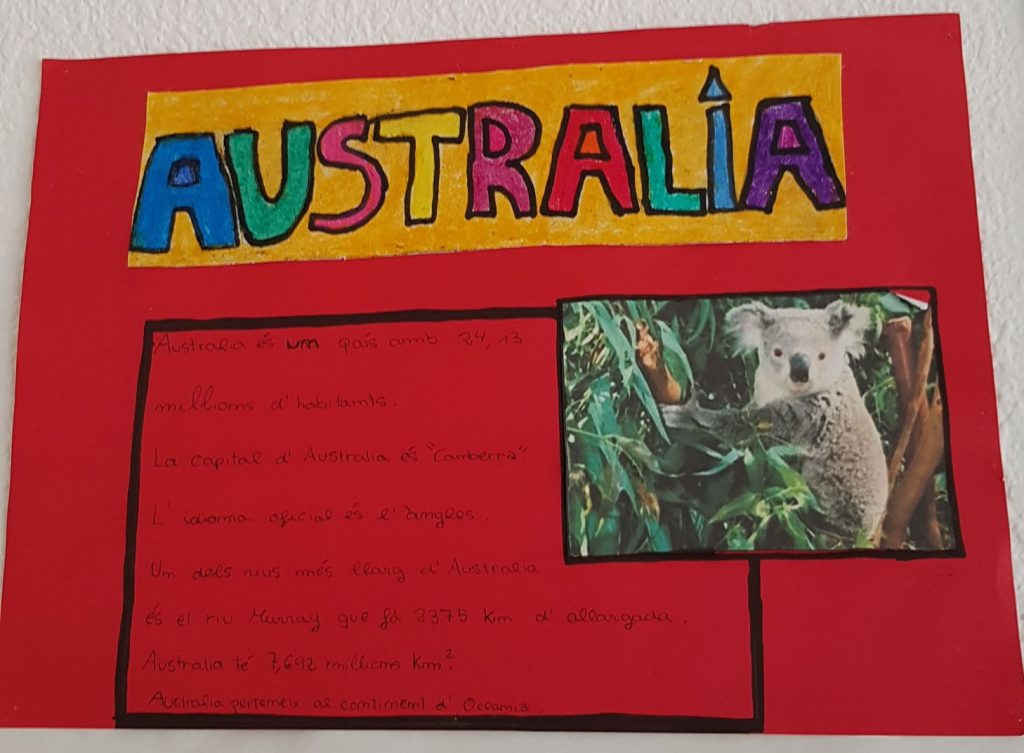 AUSTRALIA
Australia és un país amb 24,13
millions d'habitants.
La capital d'Australia és "Camberra".
L'idioma oficial és l'àngles.
Un dels rius més llarg d'Australia
és el riu Murray que fà 3375 Km d'allargada.
Australia té 7,692 millions Km².
Australia perteneix al continent d'Oceania.